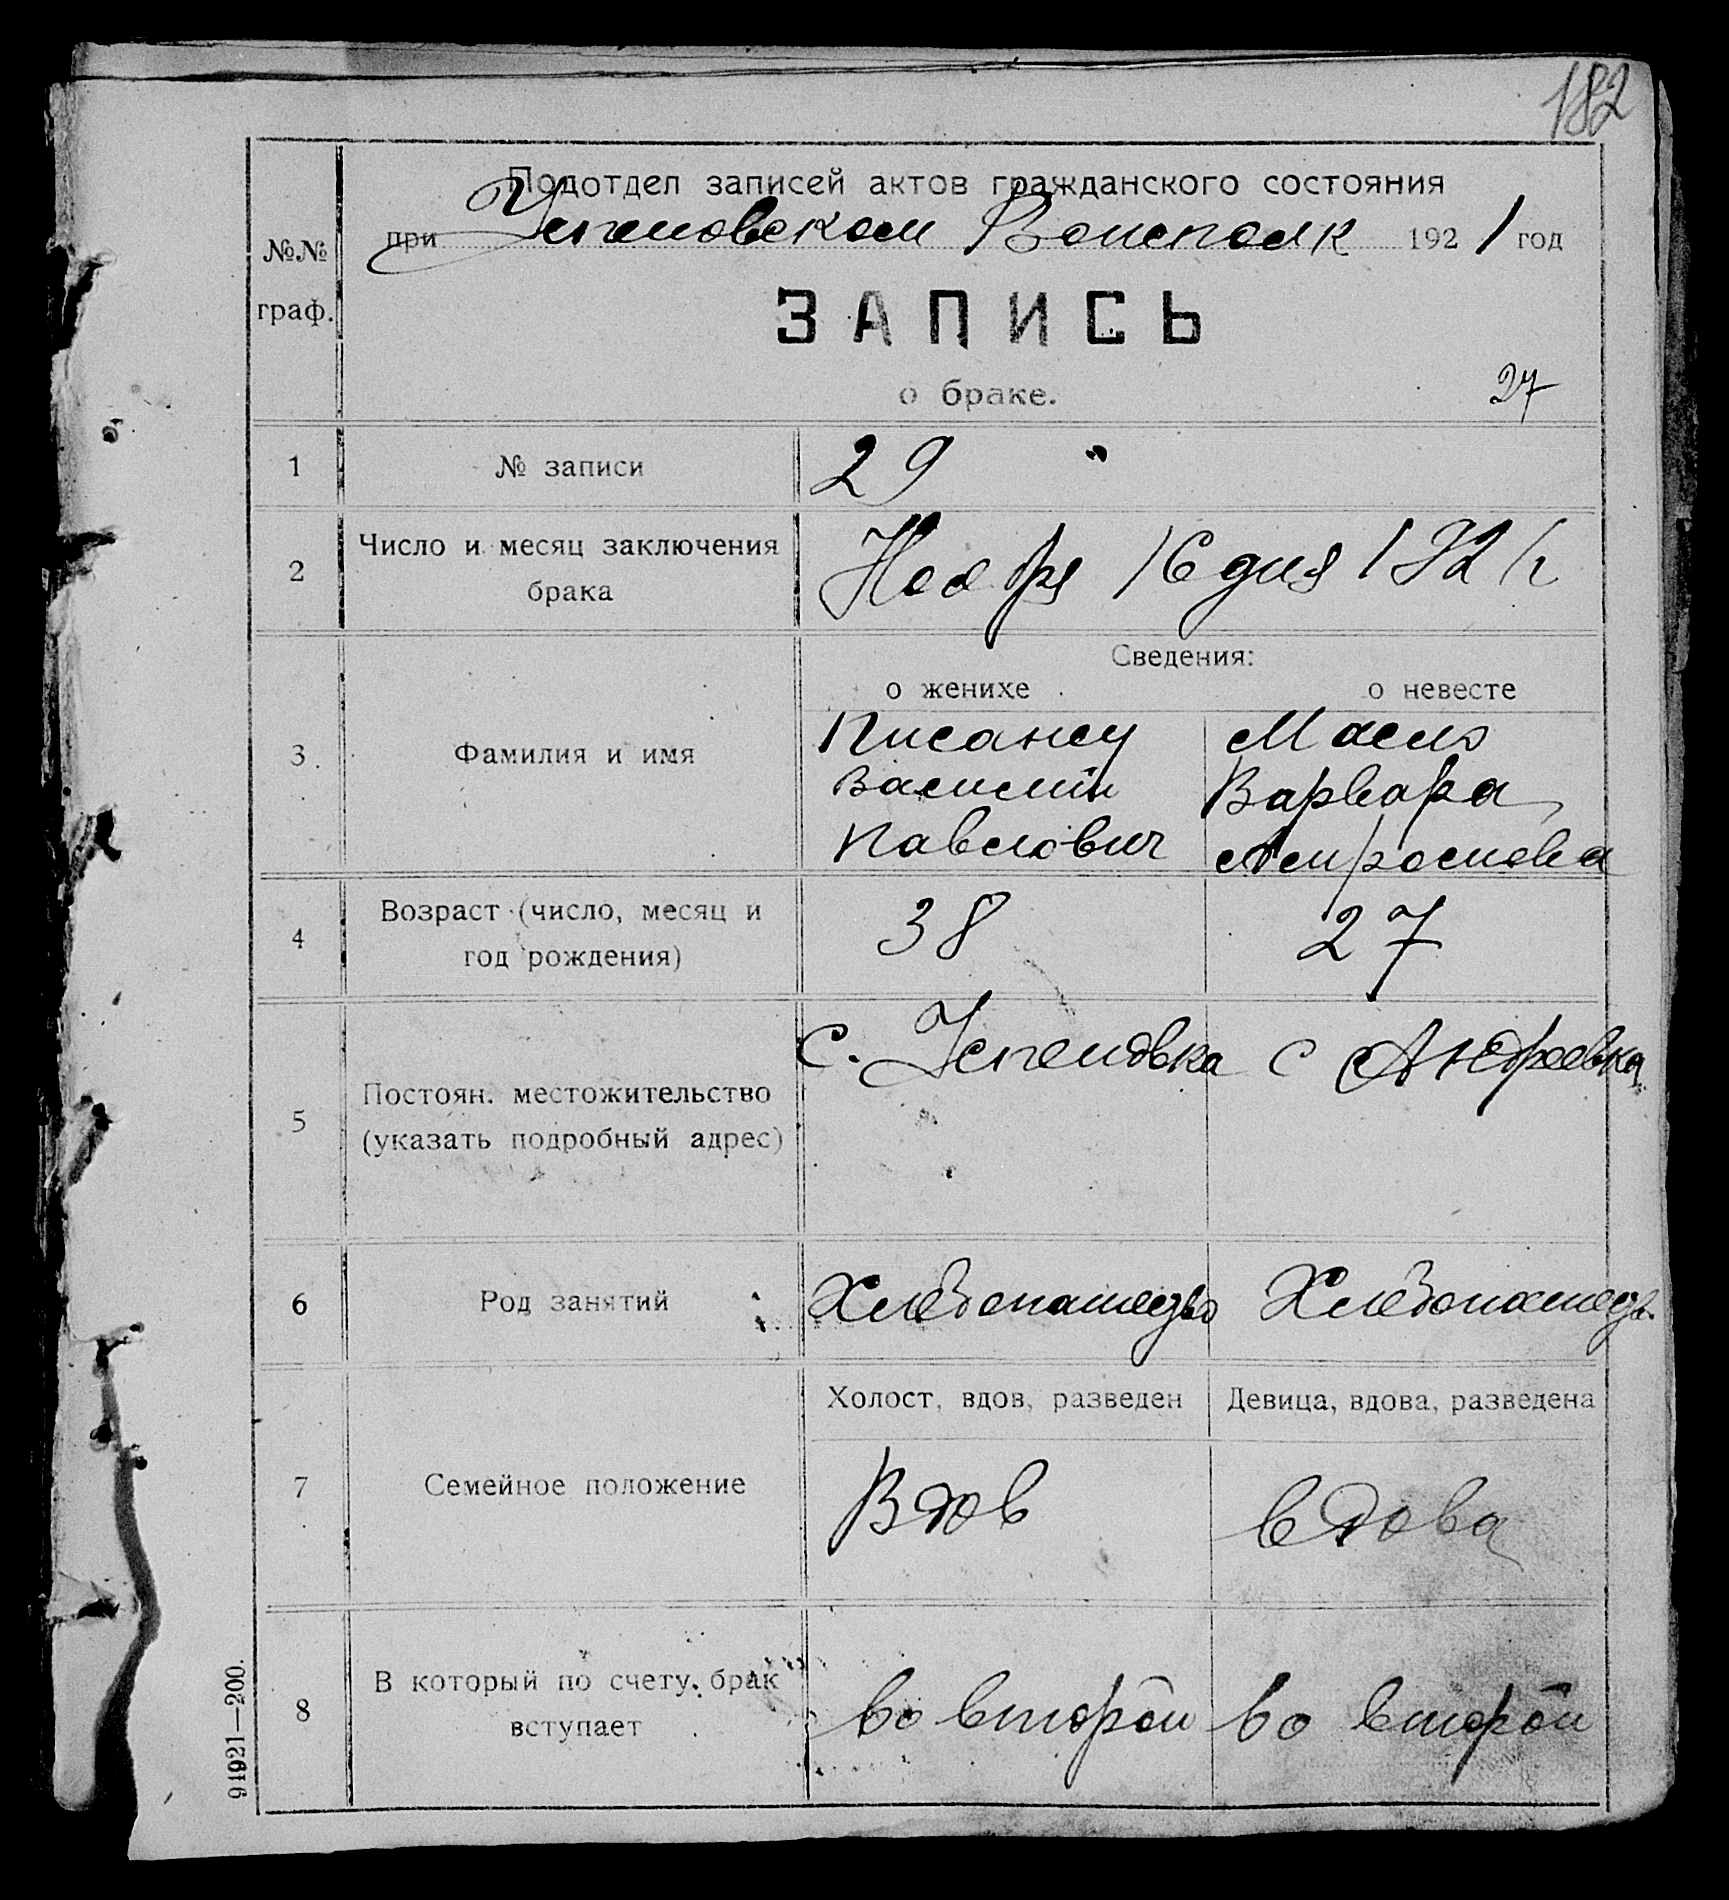 182
Подотдел записей актов гражданского состояния
при Успеновском Волисполк 1921 год
№№
граф.
ЗАПИСЬ
о браке.
27
1 № записи 29 "
2 Число и месяц заключения
брака
Ноября 16 дня 1921 г
Сведения:
о женихе о невесте
3 Фамилия и имя
Писанку Масло
Василий Варвара
Павлович
4 Возраст (число, месяц и
год рождения)
38 27
5 Постоян. местожительство
(указать подробный адрес)
с. Успеновка с Андреевка
6 Род занятий
Хлебопашедво Хлебопашедв.
Холост, вдов, разведен Девица, вдова, разведена
7 Семейное положение
Вдов вдова
8 В который по счету брак
вступает
во второй во второй
91921—200.